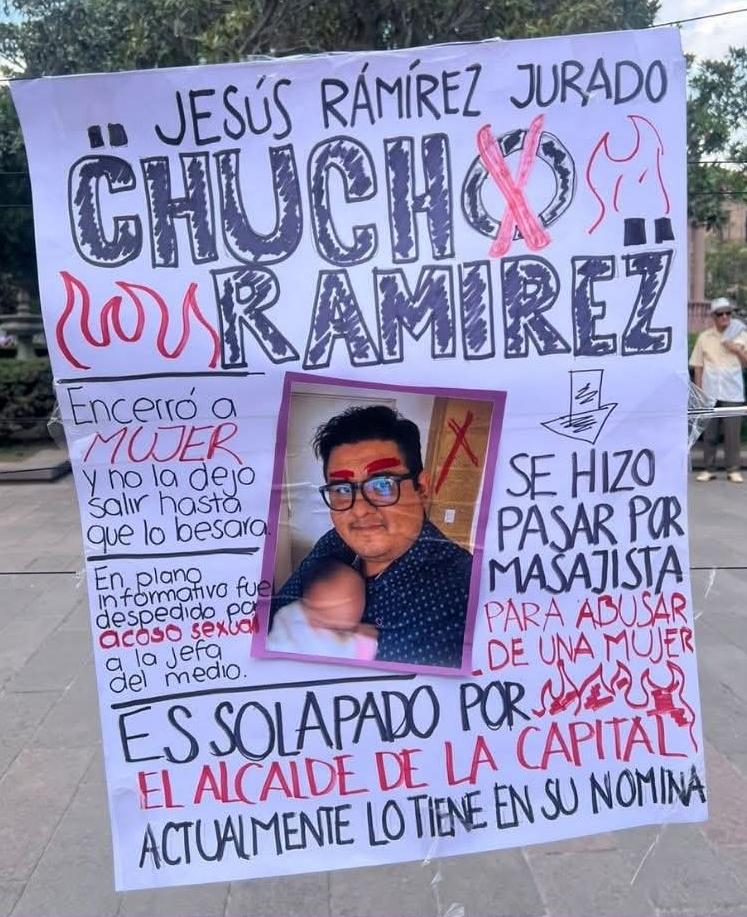 JESÚS RÁMÍREZ JURADO
CHUCHO
RAMIREZ
Encerró a
MUJER
y no la dejo
salir hasta
que lo besara.
En plano
informativo fue
despedido por
acoso sexual
a la jefa
del medio.
SE HIZO
PASAR POR
MASAJISTA
PARA ABUSAR
DE UNA MUJER
ES SOLAPADO POR
EL ALCALDE DE LA CAPITAL
ACTUALMENTE LO TIENE EN SU NOMINA